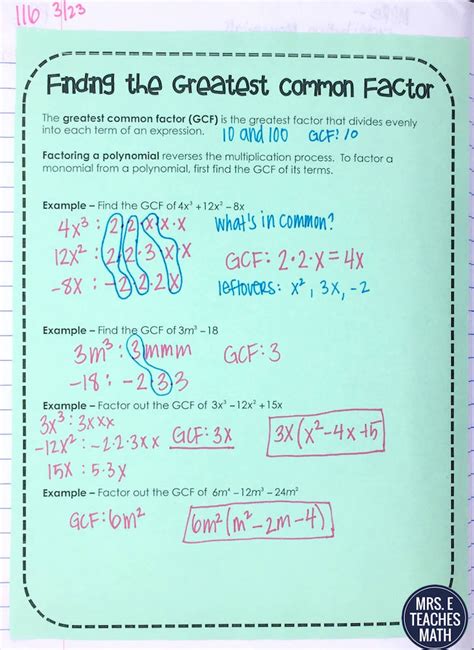 116 3/23
Finding the Greatest Common Factor
The greatest common factor (GCF) is the greatest factor that divides evenly
into each term of an expression. 10 and 100 GCF: 10
Factoring a polynomial reverses the multiplication process. To factor a
monomial from a polynomial, first find the GCF of its terms.
Example – Find the GCF of 4x³ +12x² – 8x
4x³ : 2·2·x·x·x what's in common?
12x² : 2·2·3·x·x GCF: 2·2·x=4x
-8x : -2·2·2x leftovers: x², 3x, -2
Example – Find the GCF of 3m³ – 18
3m³ : 3mmm GCF: 3
-18 : -2·3·3
Example – Factor out the GCF of 3x³ – 12x² + 15x
3x³ : 3xxx
-12x² : -2·2·3xx GCF: 3x 3x(x²-4x+5
15x : 5·3x
Example – Factor out the GCF of 6m⁴ – 12m³ – 24m²
GCF: 6m² 6m²(m²-2m-4)
MRS. E
TEACHES
MATH